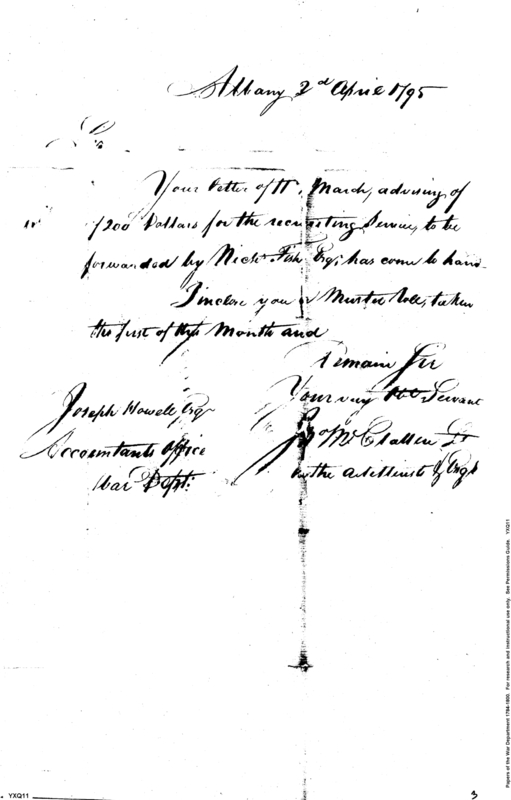 Albany 2d April 1795
Sir
Your letter of 11th, March, advising of
1200 Dollars for the recruiting Service, to be
forwarded by Nichs Fish Esqr; has come to hand
I inclose you a Muster Role, taken
the first of this Month and
Remain Sir
Your very Hble Servant
Jno McClallen Lt
in the Artillerists & Engrs
Joseph Howell Esqr
Accountants office
War Dept:
YXQ11
3
Papers of the War Department 1784-1800. For research and instructional use only. See Permissions Guide. YXQ11